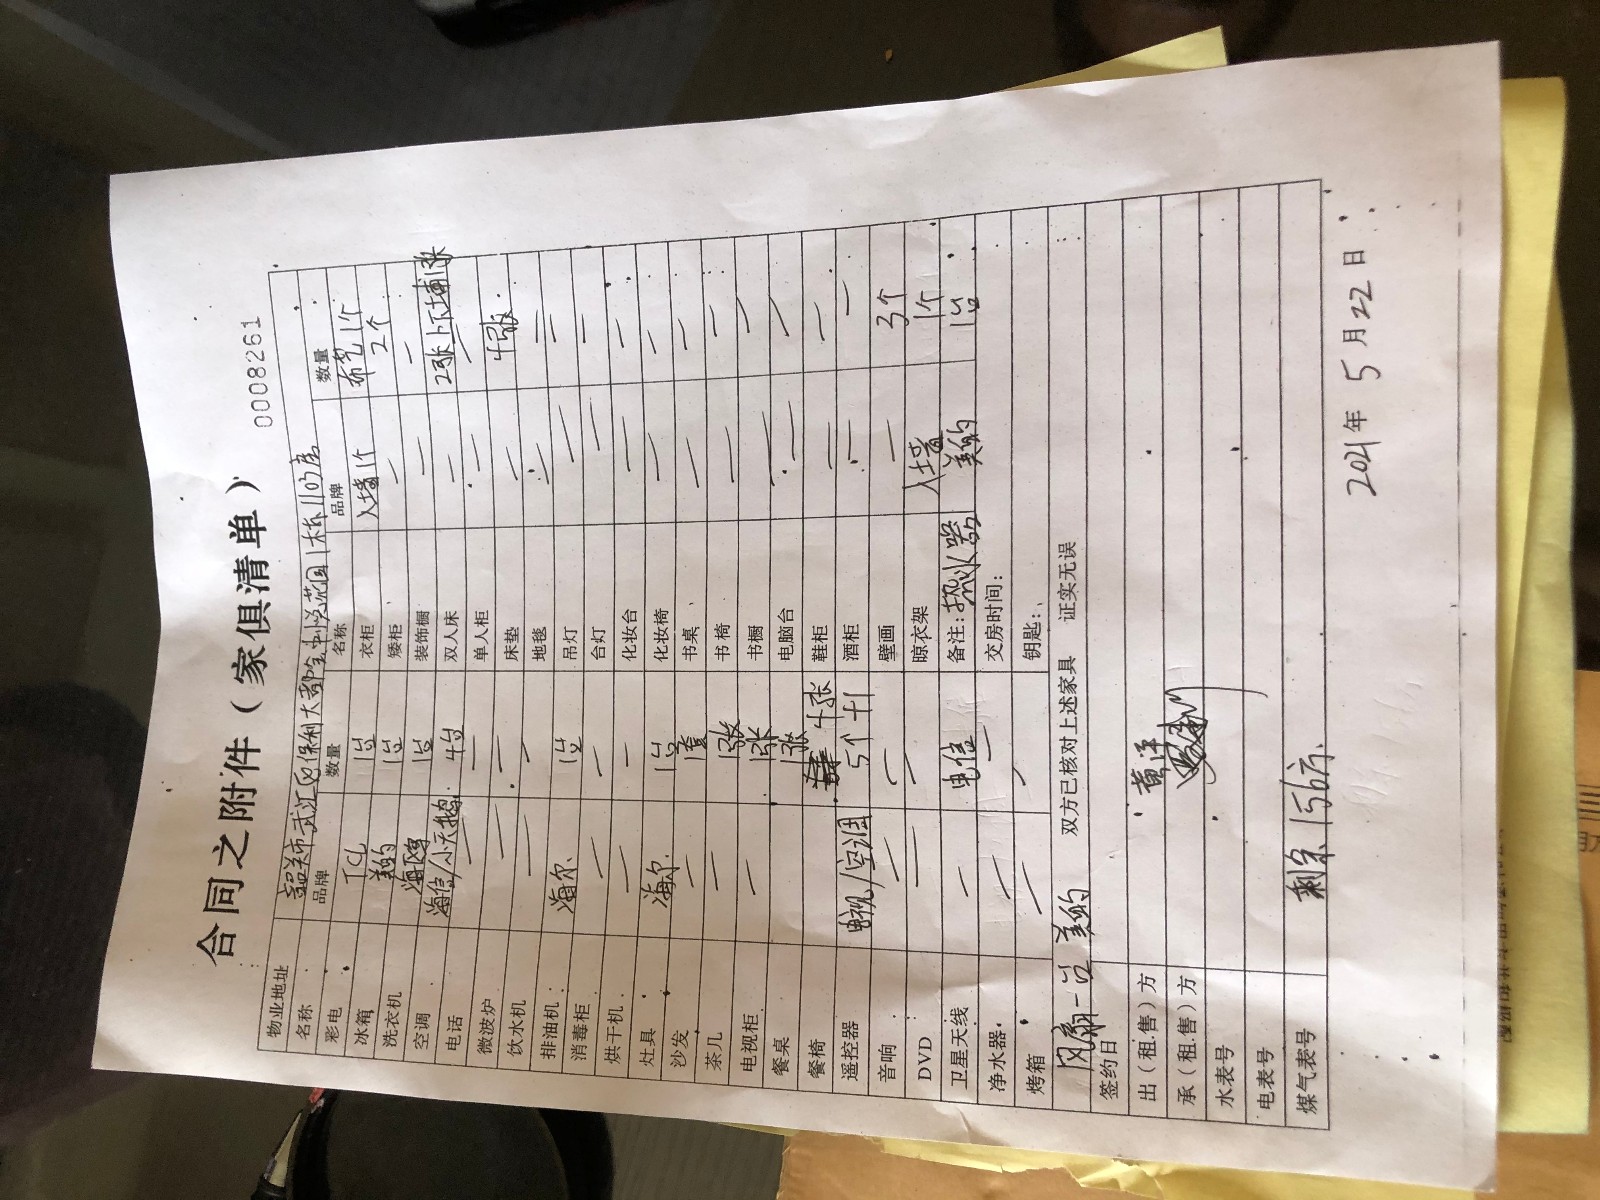 合同之附件（家俱清单）
0008261
物业地址 韶关市武江区保利大都会中兴花园1栋1103房
名称 品牌 数量 名称 品牌 数量
彩电 TCL 1台 衣柜 入墙1个 布艺1个
冰箱 美的 1台 矮柜 2个
洗衣机 1台 装饰橱
空调 海信/小天鹅 4台 双人床 2张上下埔1张
电话 单人柜
微波炉 床垫 4张
饮水机 地毯
排油机 海尔 1台 吊灯
消毒柜 台灯
烘干机 化妆台
灶具 海尔 1台 化妆椅
沙发 1套 书桌
茶几 1张 书椅
电视柜 1张 书橱
餐桌 1张 电脑台
餐椅 4张 鞋柜
遥控器 电视/空调 5个+1 酒柜
音响 壁画 3个
DVD 晾衣架 入墙 1个
卫星天线 电信 备注：热水器 美的 1台
净水器 交房时间：
烤箱 钥匙：
风扇一台 美的 双方已核对上述家具 证实无误
签约日
出（租.售）方
承（租.售）方
水表号
电表号
煤气表号 剩余156方
2021年5月22日